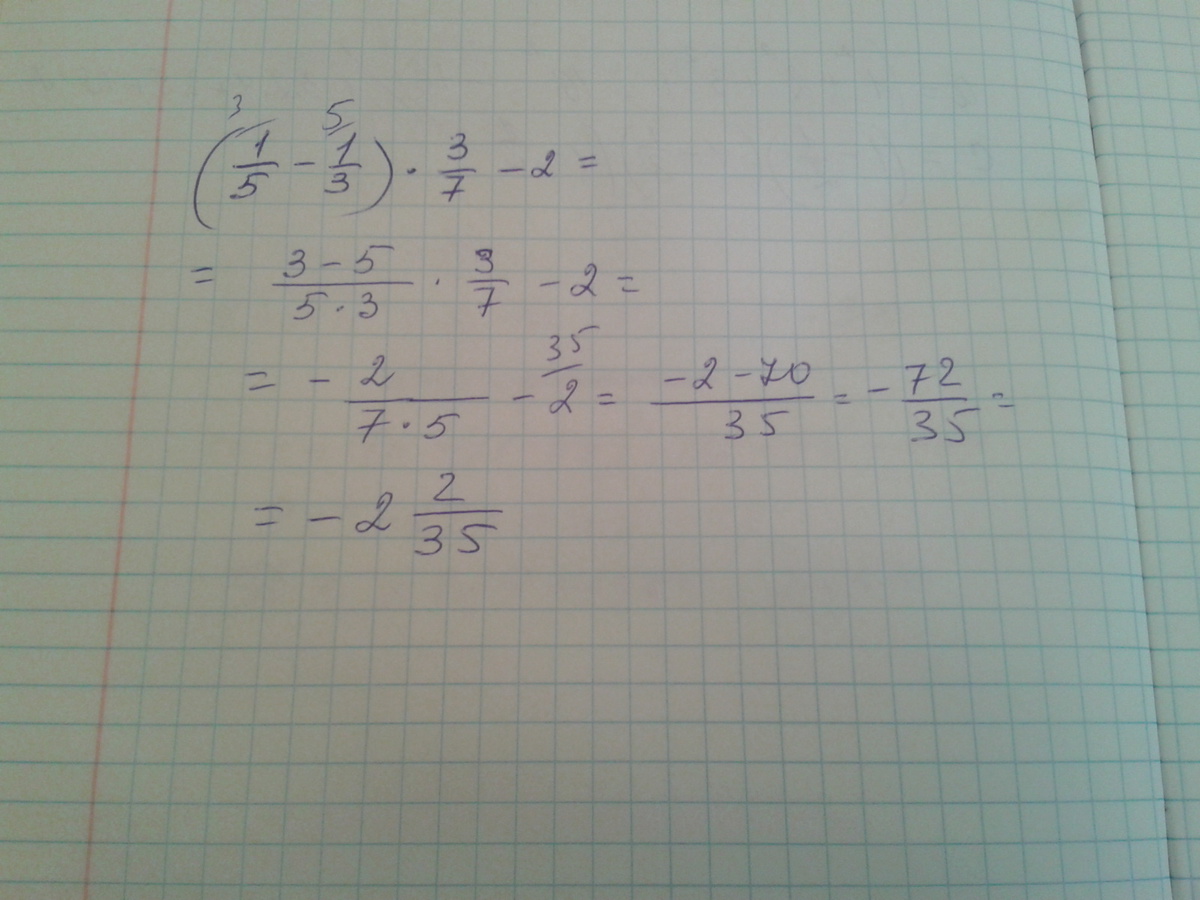 (1/5 - 1/3) · 3/7 - 2 =
= (3 - 5)/(5 · 3) · 3/7 - 2 =
= - 2/(7 · 5) - 2 = (-2 - 70)/35 = - 72/35 =
= - 2 2/35